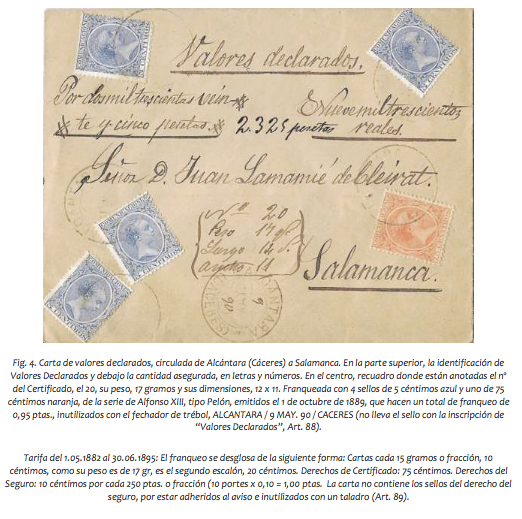 Valores declarados.
Por dos mil trescientas vein-
te y cinco pesetas. # 2.325 pesetas
# Nueve mil trescientos
reales.
Señor D. Juan Lamamié de Cleirat.
Nº 20
Peso 17 gs.
Largo 12
Ancho 11
Salamanca.
9
90
Fig. 4. Carta de valores declarados, circulada de Alcántara (Cáceres) a Salamanca. En la parte superior, la identificación de
Valores Declarados y debajo la cantidad asegurada, en letras y números. En el centro, recuadro donde están anotadas el nº
del Certificado, el 20, su peso, 17 gramos y sus dimensiones, 12 x 11. Franqueada con 4 sellos de 5 céntimos azul y uno de 75
céntimos naranja, de la serie de Alfonso XIII, tipo Pelón, emitidos el 1 de octubre de 1889, que hacen un total de franqueo de
0,95 ptas., inutilizados con el fechador de trébol, ALCANTARA / 9 MAY. 90 / CACERES (no lleva el sello con la inscripción de
“Valores Declarados”, Art. 88).
Tarifa del 1.05.1882 al 30.06.1895: El franqueo se desglosa de la siguiente forma: Cartas cada 15 gramos o fracción, 10
céntimos, como su peso es de 17 gr, es el segundo escalón, 20 céntimos. Derechos de Certificado: 75 céntimos. Derechos del
Seguro: 10 céntimos por cada 250 ptas. o fracción (10 portes x 0,10 = 1,00 ptas. La carta no contiene los sellos del derecho del
seguro, por estar adheridos al aviso e inutilizados con un taladro (Art. 89).